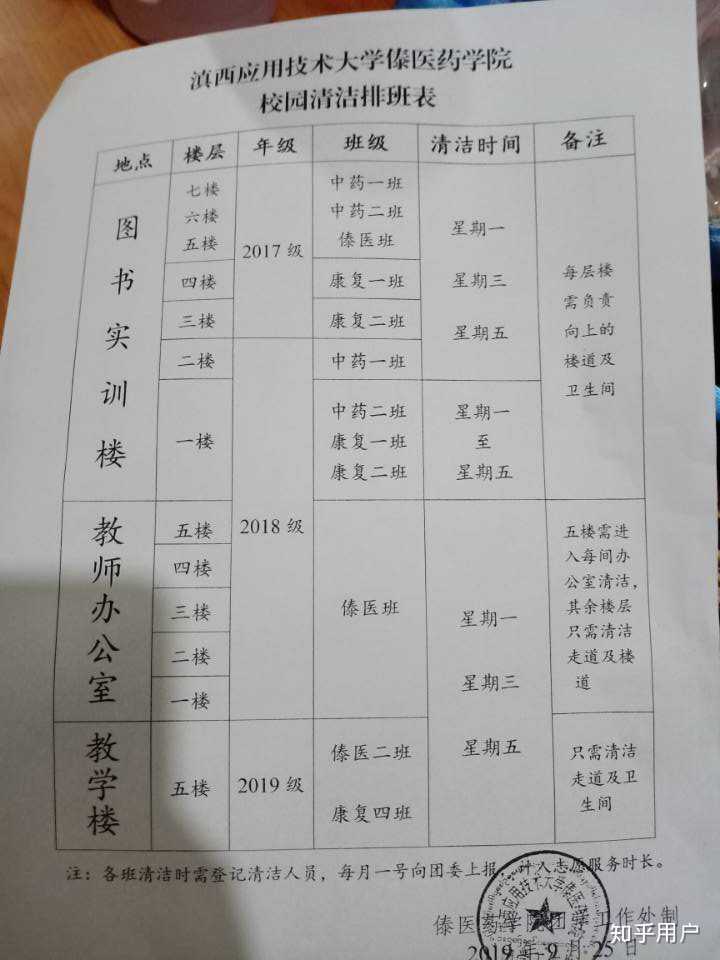 滇西应用技术大学傣医药学院
校园清洁排班表
地点 楼层 年级 班级 清洁时间 备注
图书实训楼
七楼
六楼
五楼
四楼
三楼
二楼
一楼
2017 级
中药一班
中药二班
傣医班
康复一班
康复二班
星期一
星期三
星期五
每层楼
需负责
向上的
楼道及
卫生间
2018 级
中药一班
中药二班
康复一班
康复二班
星期一
至
星期五
教师办公室
五楼
四楼
三楼
二楼
一楼
傣医班
星期一
星期三
星期五
五楼需进
入每间办
公室清洁,
其余楼层
只需清洁
走道及楼
道
教学楼
五楼
2019 级
傣医二班
康复四班
只需清洁
走道及卫
生间
注：各班清洁时需登记清洁人员，每月一号向团委上报，计入志愿服务时长。
傣医药学院团学工作处制
2019 年 9 月 25 日
应用技术大学傣医
知乎用户